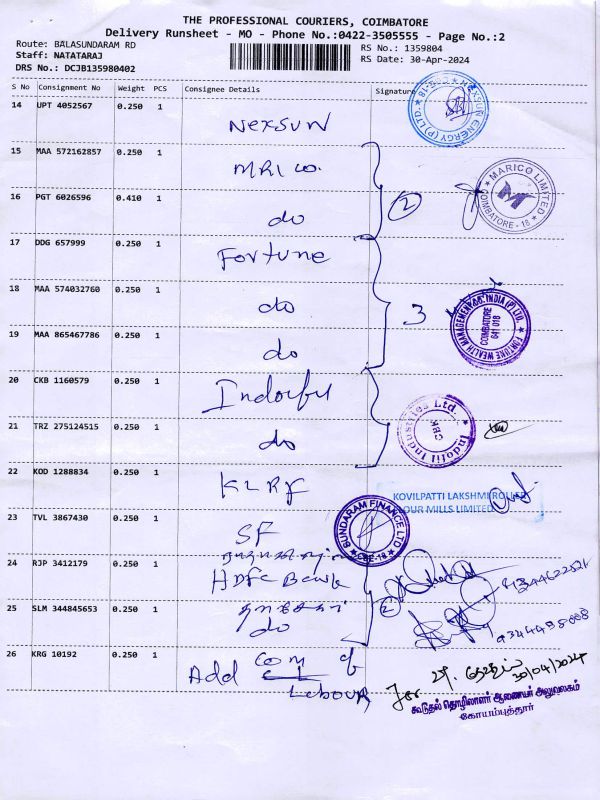 THE PROFESSIONAL COURIERS, COIMBATORE
Delivery Runsheet - MO - Phone No.:0422-3505555 - Page No.:2
Route: BALASUNDARAM RD
Staff: NATATARAJ
DRS No.: DCJB135980402
RS No.: 1359804
RS Date: 30-Apr-2024
S No Consignment No Weight PCS Consignee Details Signature
14 UPT 4052567 0.250 1 Nexsun
NEXSUN ENERGY (P) LTD
15 MAA 572162857 0.250 1 MRI co.
16 PGT 6026596 0.410 1 do
2
MARICO LIMITED
COIMBATORE - 18
17 DDG 657999 0.250 1 Fortune
18 MAA 574032760 0.250 1 do
19 MAA 865467786 0.250 1 do
3
FORTUNE WEALTH MANAGEMENT CO. INDIA (P) LTD.
COIMBATORE
641 018
20 CKB 1160579 0.250 1
21 TRZ 275124515 0.250 1 do
Indofil Industries Ltd.
CBE
22 KOD 1288834 0.250 1 KLRF
KOVILPATTI LAKSHMI ROLLER
FLOUR MILLS LIMITED
23 TVL 3867430 0.250 1 SF
SUNDARAM FINANCE LTD
CBE-18
24 RJP 3412179 0.250 1 HDFC Bank
25 SLM 344845653 0.250 1 do
2
9344498088
26 KRG 10192 0.250 1 Add com of
Labour
For
30/04/2024
கூடுதல் தொழிலாளர் ஆணையர் அலுவலகம்
கோயம்புத்தூர்